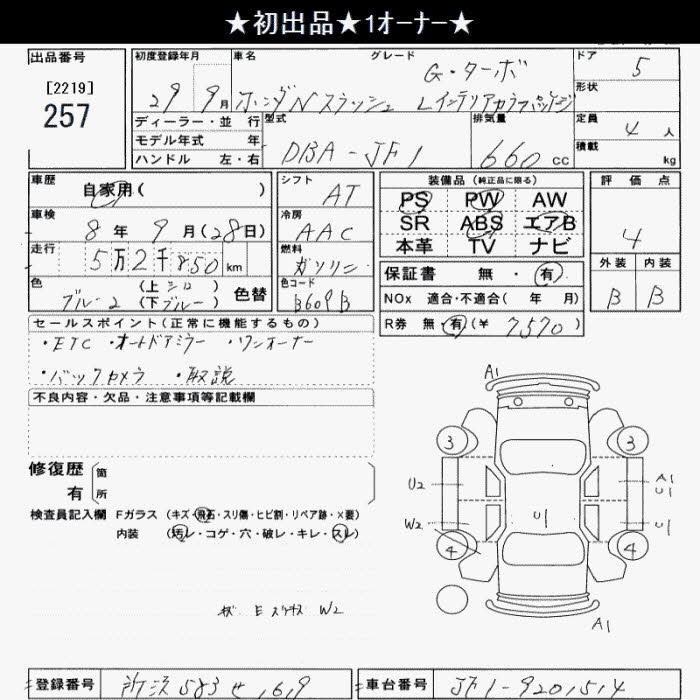 ★初出品★1オーナー★
出品番号
[2219]
257
初度登録年月
29 9月
車名
ホンダNスラッシュ
グレード
G・ターボ
Lインテリアカラーパッケージ
ドア
5
形状
ディーラー・並 行
モデル年式 年
ハンドル 左・右
型式
DBA-JF1
排気量
660 cc
定員
4 人
積載
kg
車歴
自家用(      )
車検
8 年 9 月(28日)
走行
5万2千850 km
色
ブルー2
(上 シロ )
(下 ブルー )
色替
シフト
AT
冷房
AAC
燃料
ガソリン
色コード
B609B
装備品(純正品に限る)
PS PW AW
SR ABS エアB
本革 TV ナビ
保証書 無・有
NOx 適合・不適合( 年 月)
R券 無・有(¥ 7570 )
評 価 点
4
外装 内装
B B
セールスポイント(正常に機能するもの)
・ETC ・オートドアミラー ・ワンオーナー
・バックカメラ ・取説
不良内容・欠品・注意事項等記載欄
修復歴
有
箇
所
検査員記入欄
Fガラス (キズ・飛石・スリ傷・ヒビ割・リペア跡・×要)
内装 (汚レ・コゲ・穴・破レ・キレ・スレ)
W2
A1
3 3
U2
A1
U1
W2
U1
U1
4 4
A1
登録番号
所沢 583 せ 169
車台番号
JF1-9201514